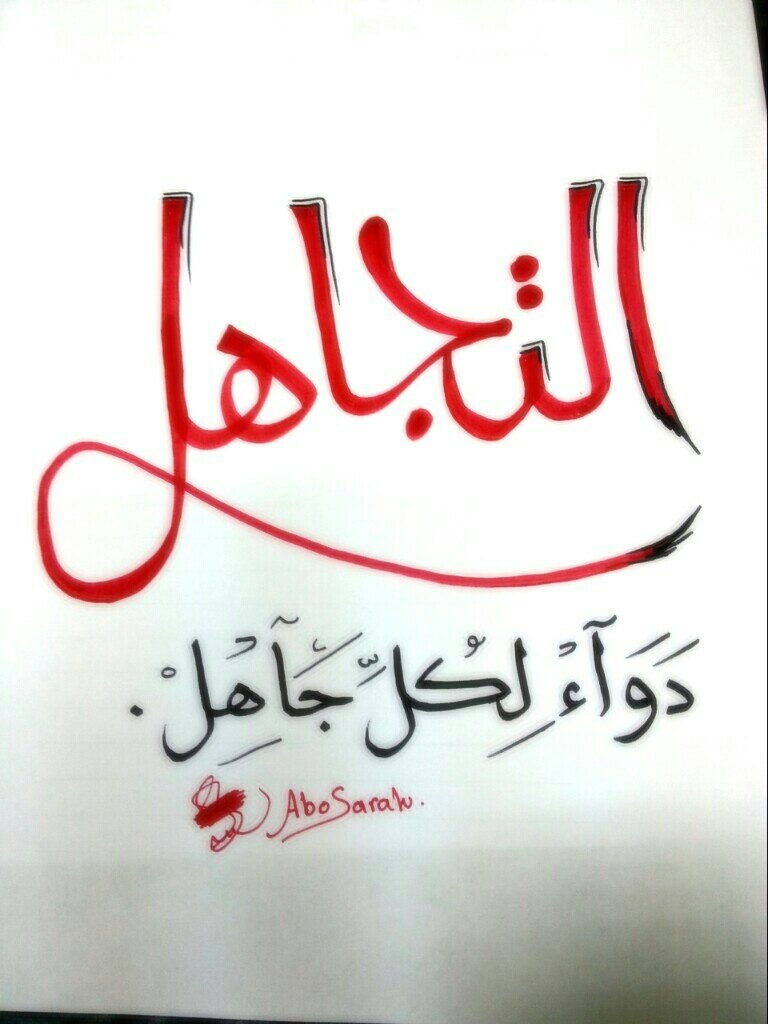 التجاهل
دَوَآءْ لِكُلِّ جَآهِلْ.
AboSarah.